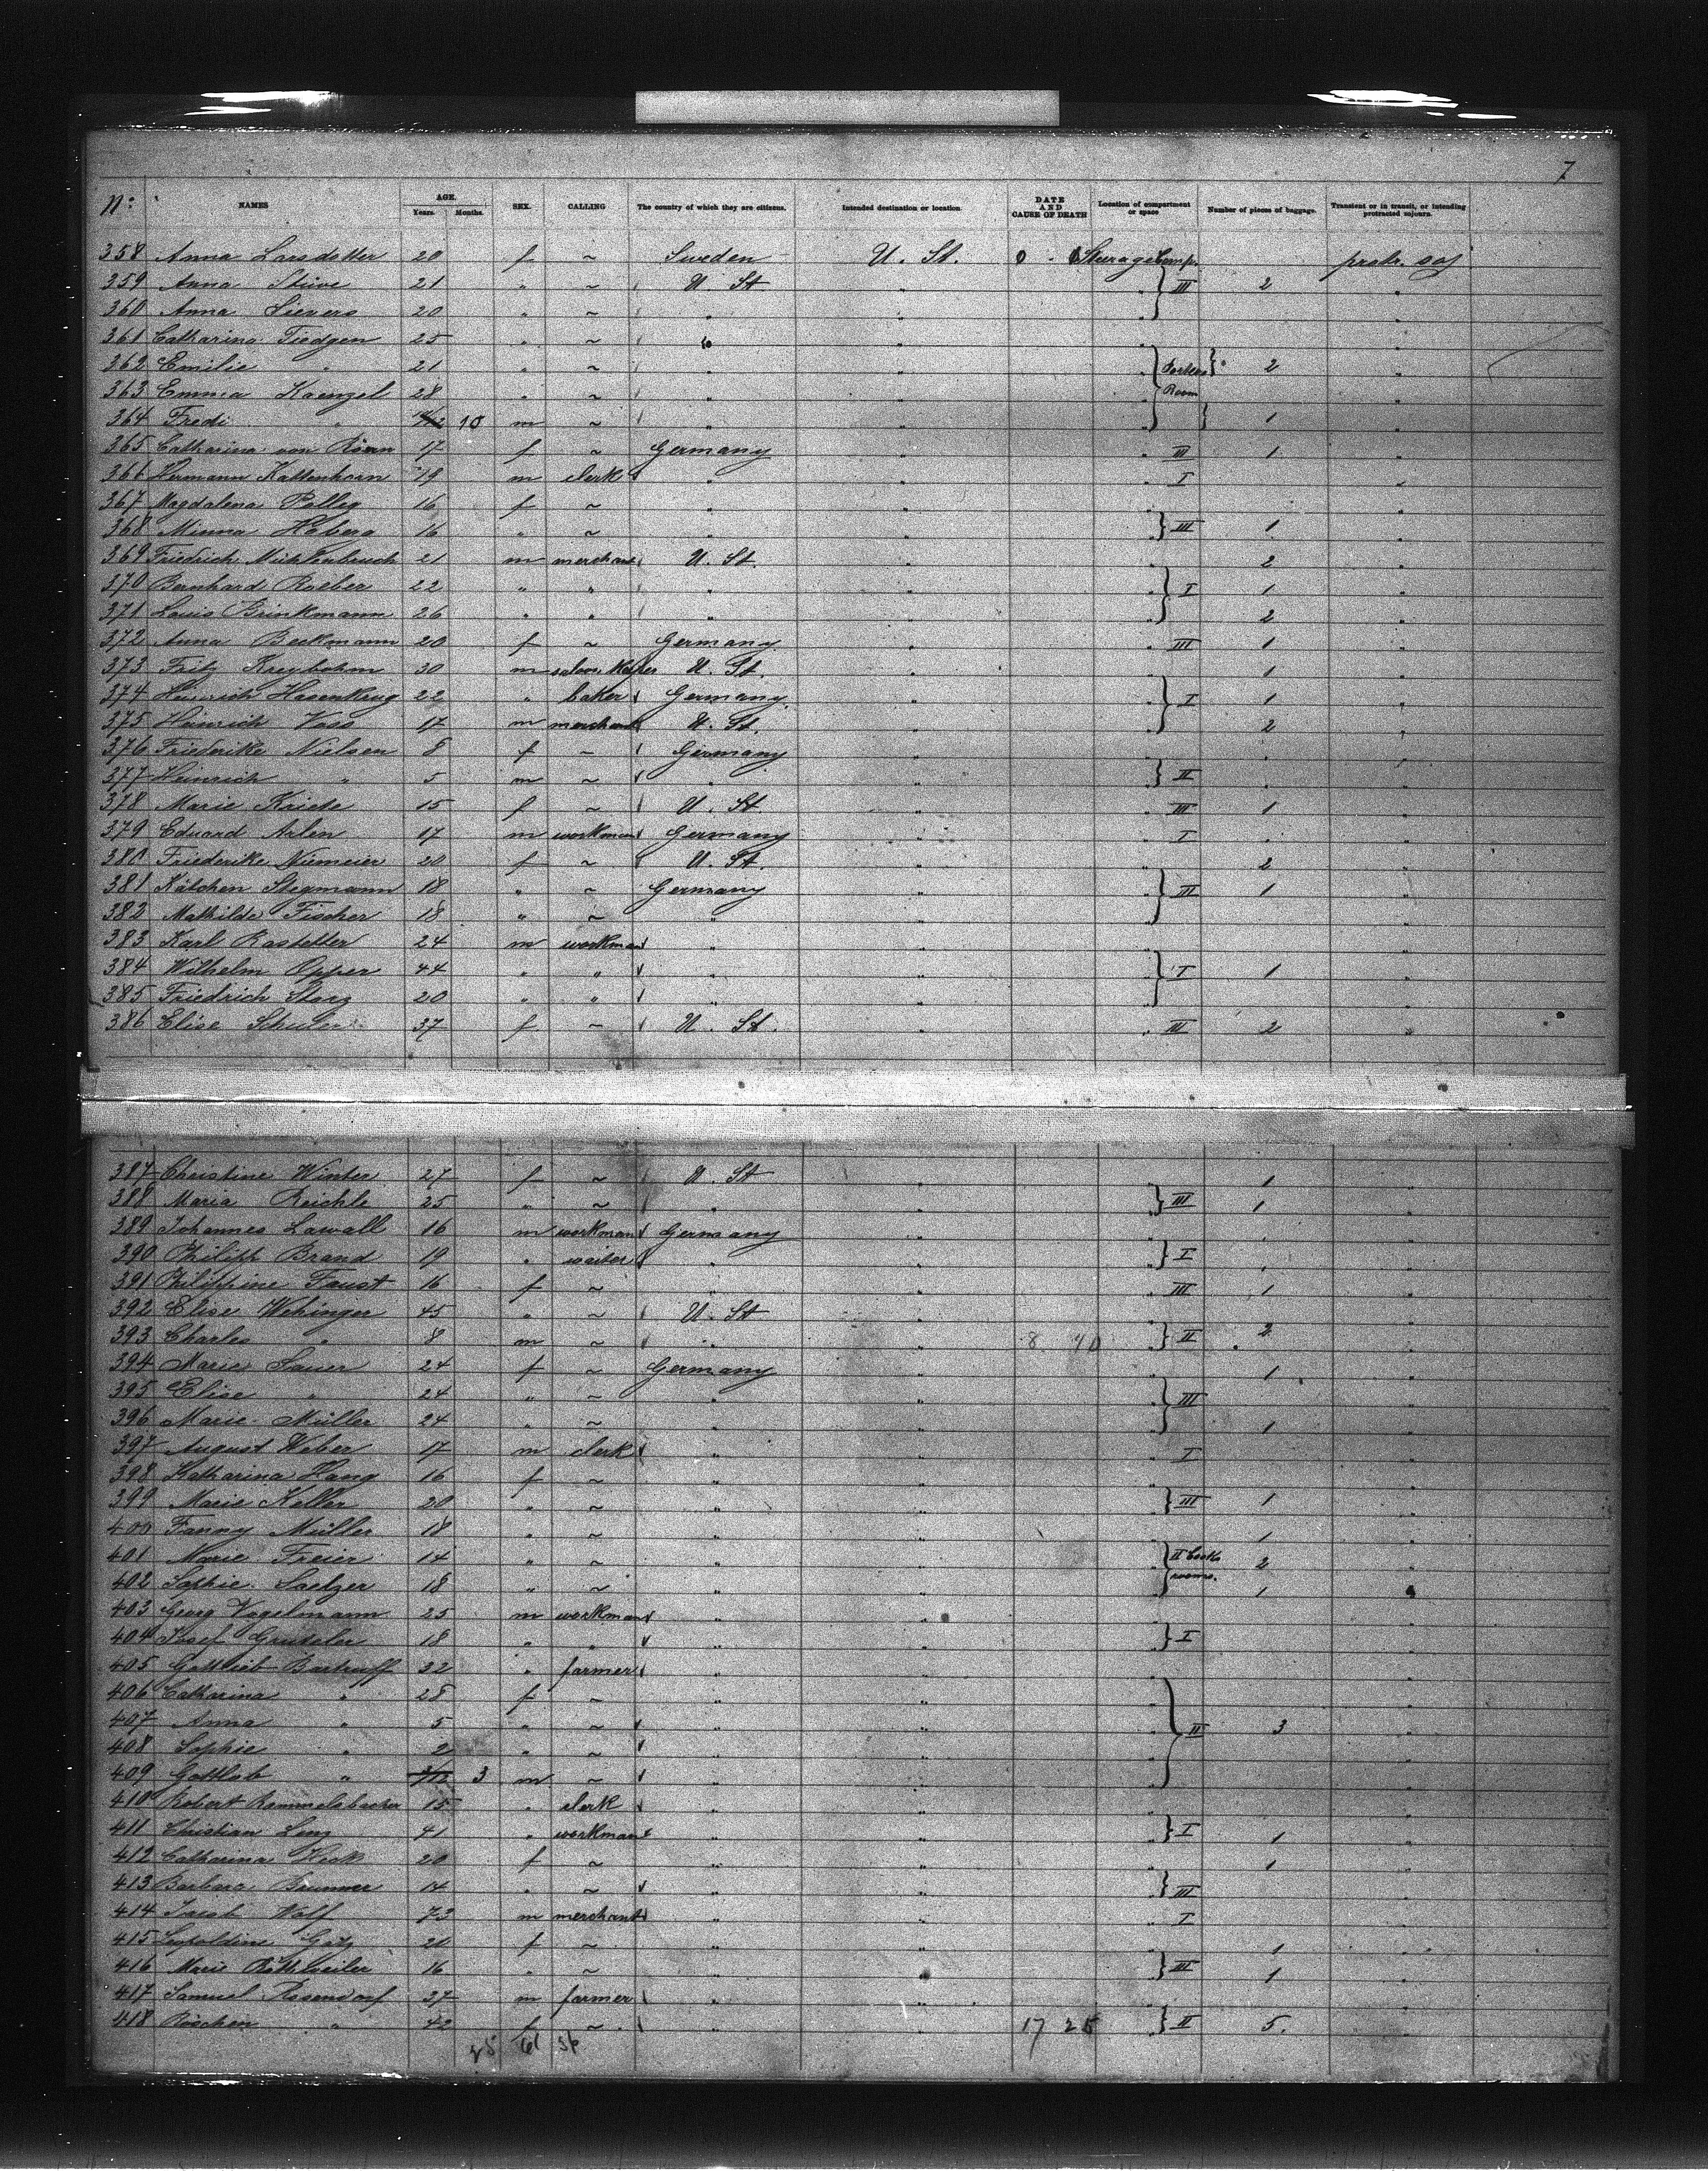 7
No: NAMES AGE. Years. Months. SEX. CALLING The country of which they are citizens. Intended destination or location. DATE AND CAUSE OF DEATH Location of compartment or space Number of pieces of baggage. Transient or in transit, or intending protracted sojourn.
358 Anna Larsdotter 20 f ~ Sweden U. St. 0 - 0 Steerage Comp. protr. soj
359 Anna Stüve 21 " ~ U. St " " III 2 "
360 Anna Sievers 20 " ~ " " "
361 Catharina Tiedgen 25 " ~ " " "
362 Emilie " 21 " ~ " " " 2 "
363 Emma Kaenzel 28 " ~ " " " Room "
364 Fredi " 10 m ~ " " " 1 "
365 Catharina von 17 f ~ Germany " " III 1 "
366 Hermann Kattenhorn 19 m clerk " " " I "
367 Magdalena 16 f ~ " " " "
368 Minna 16 " ~ " " " III 1 "
369 Friedrich Mühlenbruch 21 m merchant U. St. " " 2 "
370 Bernhard Roeber 22 " " " " " I 1 "
371 Louis Brinkmann 26 " " " " " 2 "
372 Anna Beckmann 20 f ~ Germany " " III 1 "
373 Fritz Kreybohm 30 m U. St. " " 1 "
374 Heinrich Hasenkrug 22 " baker Germany. " " I 1 "
375 Heinrich Voss 17 m merchant U. St. " " 2 "
376 Friederike Nielsen 8 f ~ Germany " " " "
377 Heinrich " 5 m ~ " " " II " "
378 Marie 15 f ~ U. St " " III 1 "
379 Eduard Arlen 17 m workman Germany " " I " "
380 Friederike Niemeier 20 f ~ U. St. " " 2 "
381 Kätchen Stegmann 18 " ~ Germany " " III 1 "
382 Mathilde Fischer 18 " ~ " " " "
383 Karl Rastetter 24 m workman " " " "
384 Wilhelm Opper 44 " " " " " I 1 "
385 Friedrich Storz 20 " " " " " "
386 Elise Schuler 37 f ~ U. St. " " III 2 "
387 Christine Winter 27 f ~ U. St " " 1 "
388 Maria Reichle 25 " ~ " " " III 1 "
389 Johannes Lawall 16 m workman Germany " " " "
390 Philipp Brand 19 " waiter " " " I " "
391 Philippine Faust 16 f ~ " " " III 1 "
392 Elise Wehinger 45 " ~ U. St " " "
393 Charles " 8 m ~ " " 8 40 " II 2 "
394 Marie Sauer 24 f ~ Germany " " 1 "
395 Elise " 24 " ~ " " " III "
396 Marie Müller 24 " ~ " " " 1 "
397 August Weber 17 m clerk " " " I "
398 Katharina Haug 16 f ~ " " " "
399 Marie Keller 20 " ~ " " " III 1 "
400 Fanny Müller 18 " ~ " " " 1 "
401 Marie Freier 14 " ~ " " " II 2 "
402 Sophie Saelzer 18 " ~ " " " rooms. 1 "
403 Georg Vogelmann 25 m workman " " " "
404 Josef 18 " " " " " I "
405 Gottlieb Bartruff 32 " farmer " " " "
406 Catharina " 28 f ~ " " " "
407 Anna " 5 " ~ " " " II 3 "
408 Sophie " 2 " ~ " " " "
409 Gottlob " 3 m ~ " " " "
410 Robert Rommelsbacher 15 " clerk " " " "
411 Christian Linz 41 " workman " " " I 1 "
412 Catharina 20 f ~ " " " 1 "
413 Barbara Brunner 14 " ~ " " " III "
414 Jacob Wolf 73 m merchant " " " I "
415 Leopoldine Götz 20 f ~ " " " 1 "
416 Marie Röthweiler 16 " ~ " " " III 1 "
417 Samuel Rosendorf 37 m farmer " " " "
418 Röschen " 42 f ~ " " 17 25 " II 5. "
25 61 36